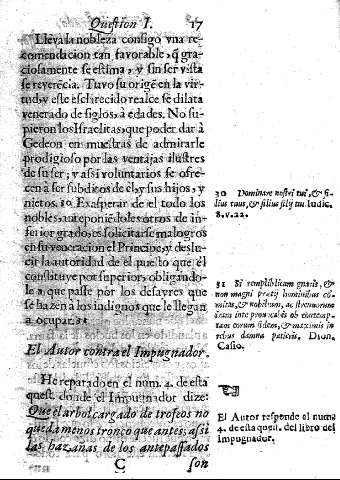 Question I. 17
Lleva la nobleza consigo vna re-
comendacion tan favorable, q̃ gra-
ciosamente se estima, y sin ser vista
se reverẽcia. Tuvo su origẽ en la vir-
tud, y este esclarecido realce se dilata
venerado de siglos, à edades. No su-
pieron los Israelitas, que poder dar à
Gedeon en muestras de admirarle
prodigioso por las ventajas ilustres
de su ser; y assi voluntarios se ofre-
cẽ à ser subditos de èl, y sus hijos, y
nietos. 30. Exasperar de el todo los
nobles, anteponiẽdoles otros de in-
ferior grado, es solicitarse malogros
en su veneracion el Principe, y deslu-
cir la autoridad de el puesto que él
constituye por superior, obligando-
le a que passe por los desayres que
se hazẽ à los indignos que le llegan
a ocupar. 31
El Autor contra el Impugnador.
He reparado en el num. 4. de esta
quest. donde el Impugnador dize:
Que el arbol cargado de trofeos no
queda menos tronco que antes, assi
las hazañas de los antepassados
C son
30 Dominare nostri tu, & fi-
lius tuus, & filius filij tui. Iudic.
8. v. 22.
31 Si rempublicam gnavis, &
non magni pretij hominibus co-
mitas, & nobilium, ac strenuorum
eorum fidem, & maximis in
rebus damna patieris, Dion,
Casio.
☜
El Autor responde el num.
4. de esta quest. del libro del
Impugnador.